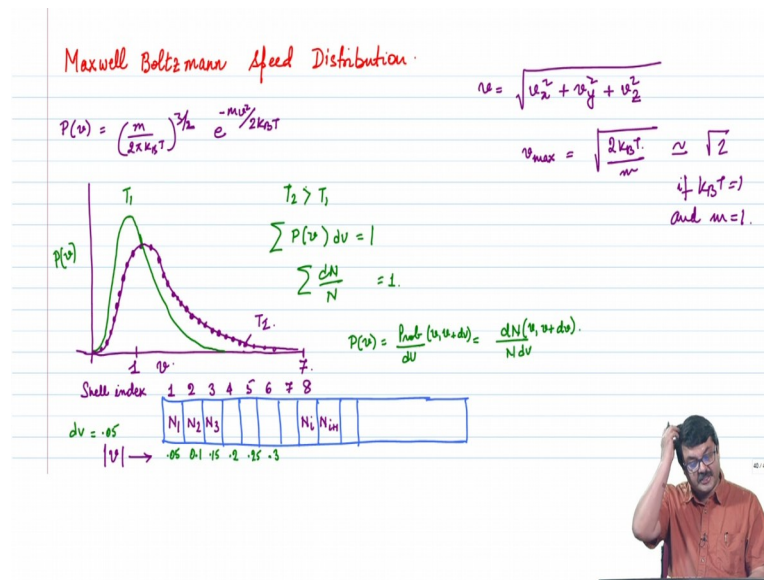 Maxwell Boltzmann Speed Distribution.
v = √(vx² + vy² + vz²)
P(v) = (m/2πkBT)^3/2 e^-mv²/2kBT
vmax = √(2kBT/m) ≃ √2
if kBT=1
and m=1.
T1
T2 > T1
∑ P(v) dv = 1
P(v)
∑ dN/N = 1.
T2.
P(v) = Prob (v, v+dv)/dv = dN(v, v+dv)/Ndv.
1 v. 7.
Shell index 1 2 3 4 5 6 7 8
N1 N2 N3 Ni Ni+1
dv = .05
|v| → .05 0.1 .15 .2 .25 .3